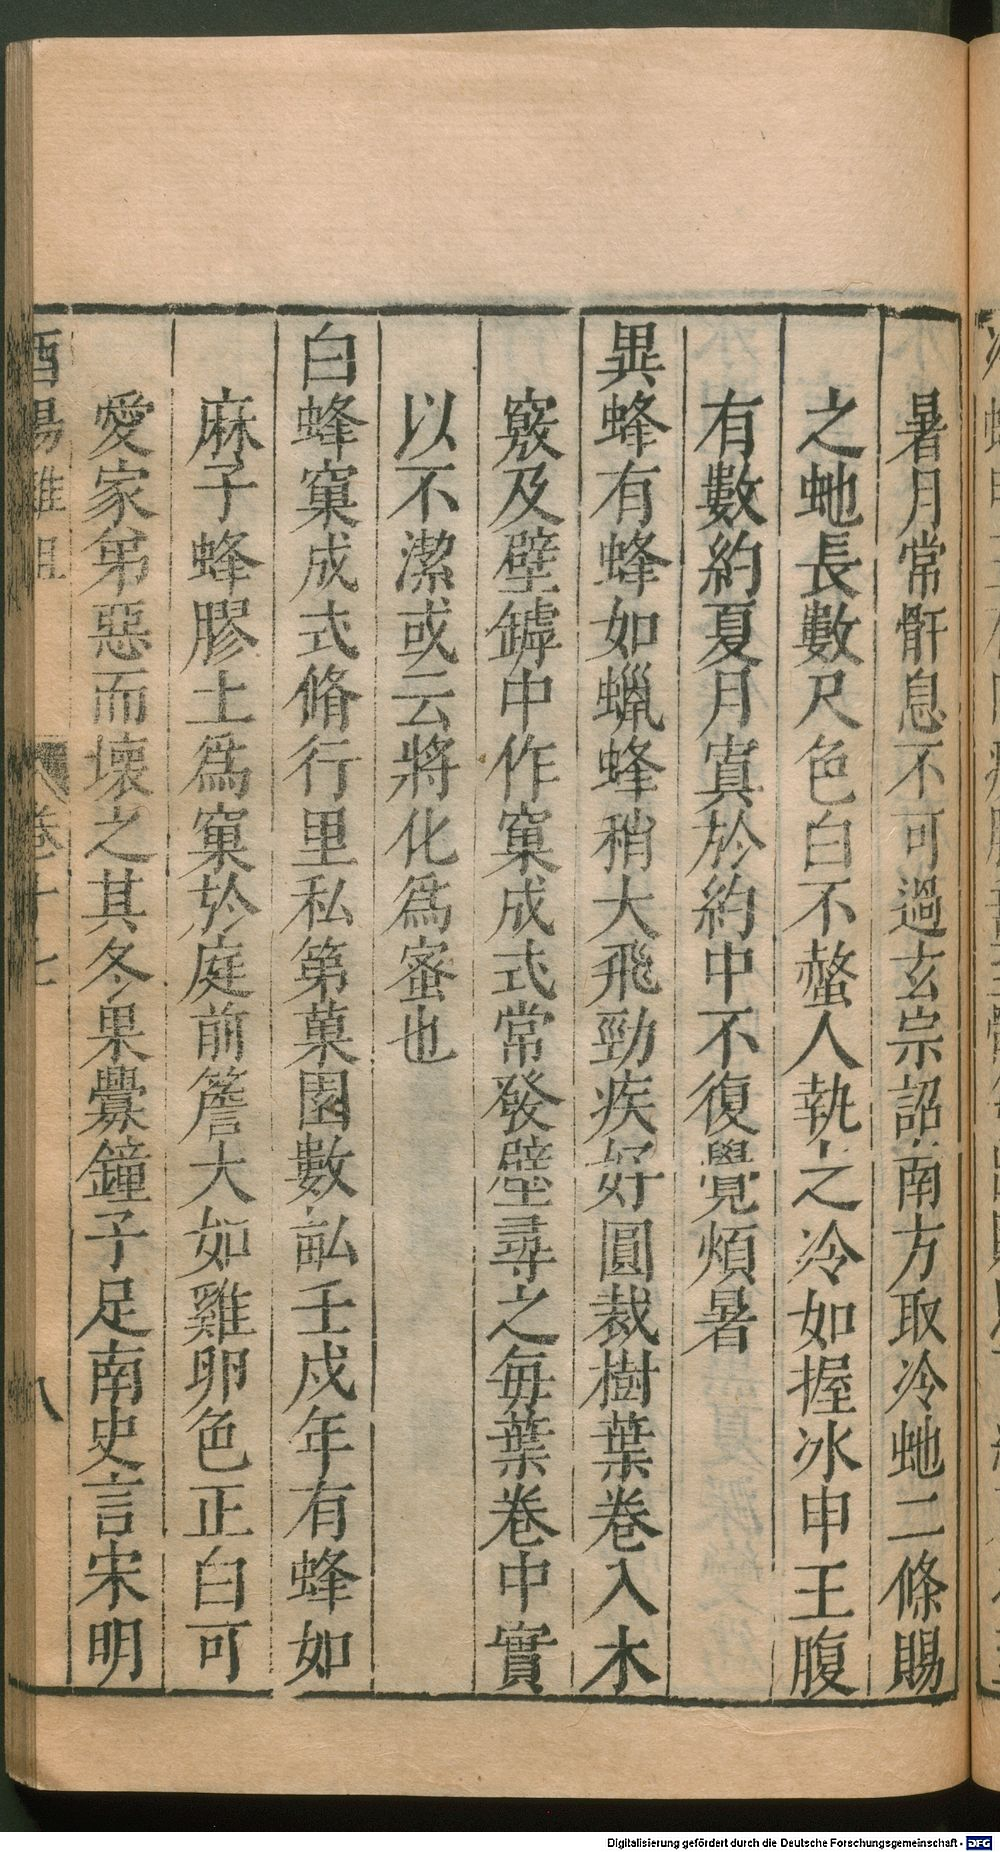 暑月常鼾息不可過玄宗詔南方取冷虵二條賜
之虵長數尺色白不螫人執之冷如握冰申王腹
有數約夏月寘於約中不復覺煩暑
異蜂有蜂如蠟蜂稍大飛勁疾好圓裁樹葉卷入木
竅及壁罅中作窠成式常發壁尋之每葉卷中實
以不潔或云將化爲蜜也
白蜂窠成式脩行里私第菓園數畝壬戌年有蜂如
麻子蜂膠土爲窠於庭前簷大如雞卵色正白可
愛家弟惡而壞之其冬果釁鐘手足南史言宋明
酉陽雜俎 卷十七 八
Digitalisierung gefördert durch die Deutsche Forschungsgemeinschaft - DFG